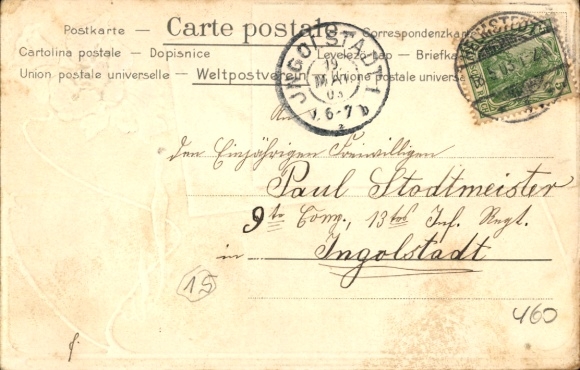 Postkarte — Carte postale — Correspondenzkarte
Cartolina postale — Dopisnice — Levelező lap — Briefka
Union postale universelle — Weltpostverein — Unione postale universa
INGOLSTADT 1
MAI
03
V. 6-7 b
2
An
den Einjährigen Freiwilligen
Paul Stadtmeister
9te Comp., 13tes Inf. Regt.
in Ingolstadt
15
460